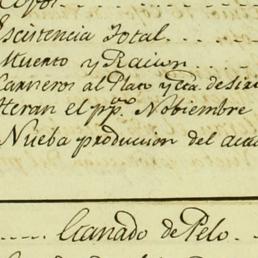 Escistencia Total
Muerto y Racion
Carneros al Plato y
Heran el pp.do Nobiembre
Nueba produccion del
Ganado de Pelo